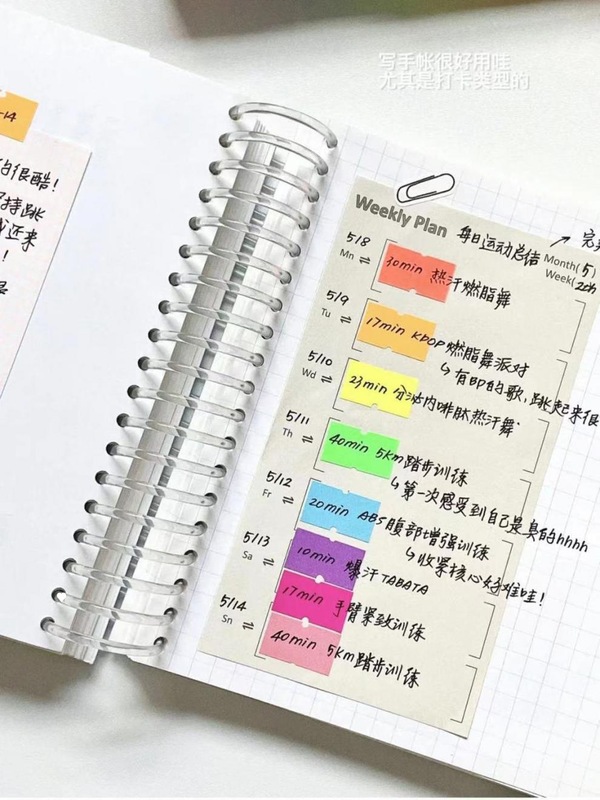 写手帐很好用哇
尤其是打卡类型的
-14
的很酷！
持跳
近来
！
Weekly Plan 每日运动总结
Month(5)
Week(
5/8 Mn 30min 热汗燃脂舞
5/9 Tu 17min KPOP燃脂舞派对
↳有BP的歌，跳起来很
5/10 Wd 23min 分泌内啡肽热汗舞
5/11 Th 40min 5Km踏步训练
↳第一次感受到自己是真的hhhh
5/12 Fr 20min ABS腹部增强训练
↳收紧核心好难哇！
5/13 Sa 10min 爆汗TABATA
17min 手臂紧致训练
5/14 Sn 40min 5Km踏步训练